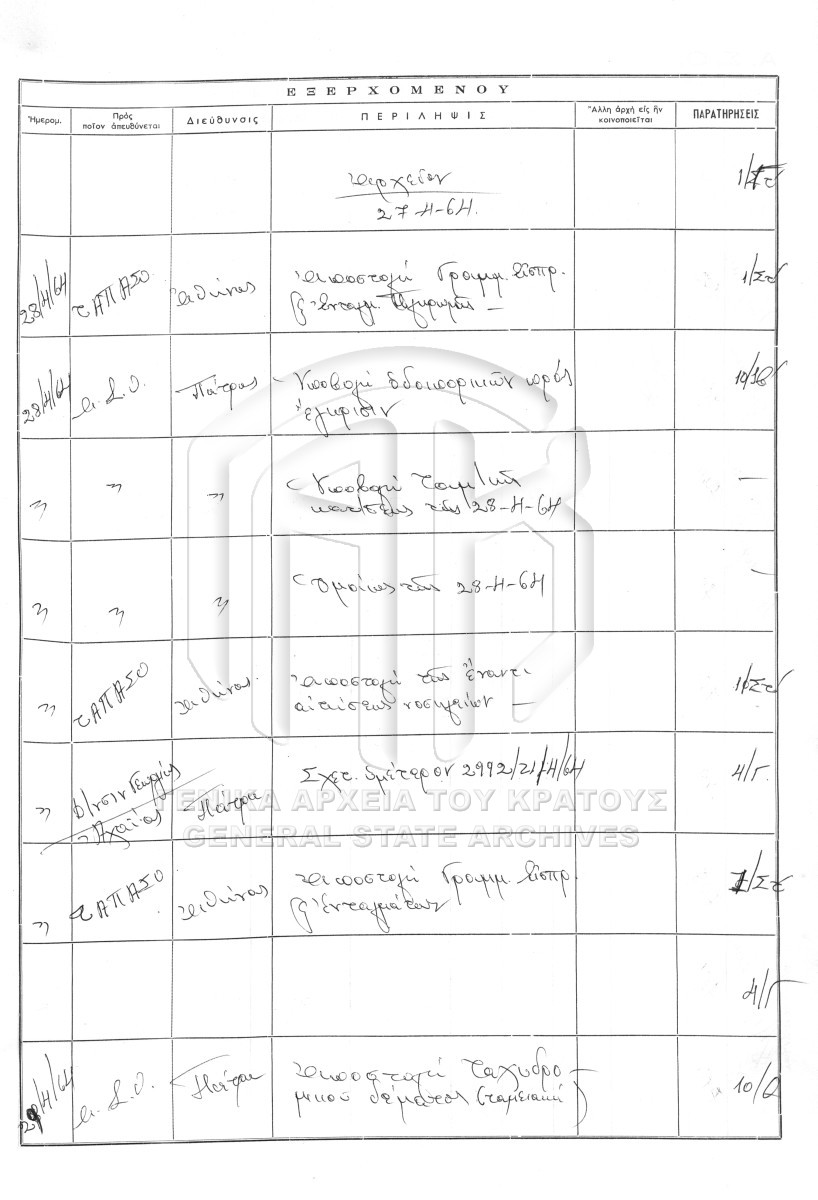 ΕΞΕΡΧΟΜΕΝΟΥ
Ἡμερομ.
Πρός ποῖον ἀπευθύνεται
Διεύθυνσις
ΠΕΡΙΛΗΨΙΣ
Ἄλλη ἀρχή εἰς ἥν κοινοποιεῖται
ΠΑΡΑΤΗΡΗΣΕΙΣ
Ἀρχεῖον
27-4-64.
1/Στ
28/4/64 ΤΑΠΑΣΟ Ἀθήνας Ἀποστολή Γραμμ. Εἰσπρ.
1/Στ
28/4/64 Πάτρας Ὑποβολή ὁδοιπορικῶν πρός
ἔγκρισιν
" " " Ὑποβολή
τῆς 28-4-64 —
" " " Ὁμοίως τῆς 28-4-64 —
" ΤΑΠΑΣΟ Ἀθήνας. Ἀποστολή τῆς ἔναντι
αἰτήσεως νοσηλείων —
1/Στ
" Δ/νσιν Γεωργίας
Ἀχαΐας Πάτρας Σχετ. ὑμέτερον 2992/21/4/64 4/Γ.
ΓΕΝΙΚΑ ΑΡΧΕΙΑ ΤΟΥ ΚΡΑΤΟΥΣ
GENERAL STATE ARCHIVES
" ΤΑΠΑΣΟ Ἀθήνας Ἀποστολή Γραμμ. Εἰσπρ.
ἐνταλμάτων
4/Γ
29/4/64 Πάτρας Ἀποστολή ταχυδρο-
μικοῦ δέματος (ταμειακή)